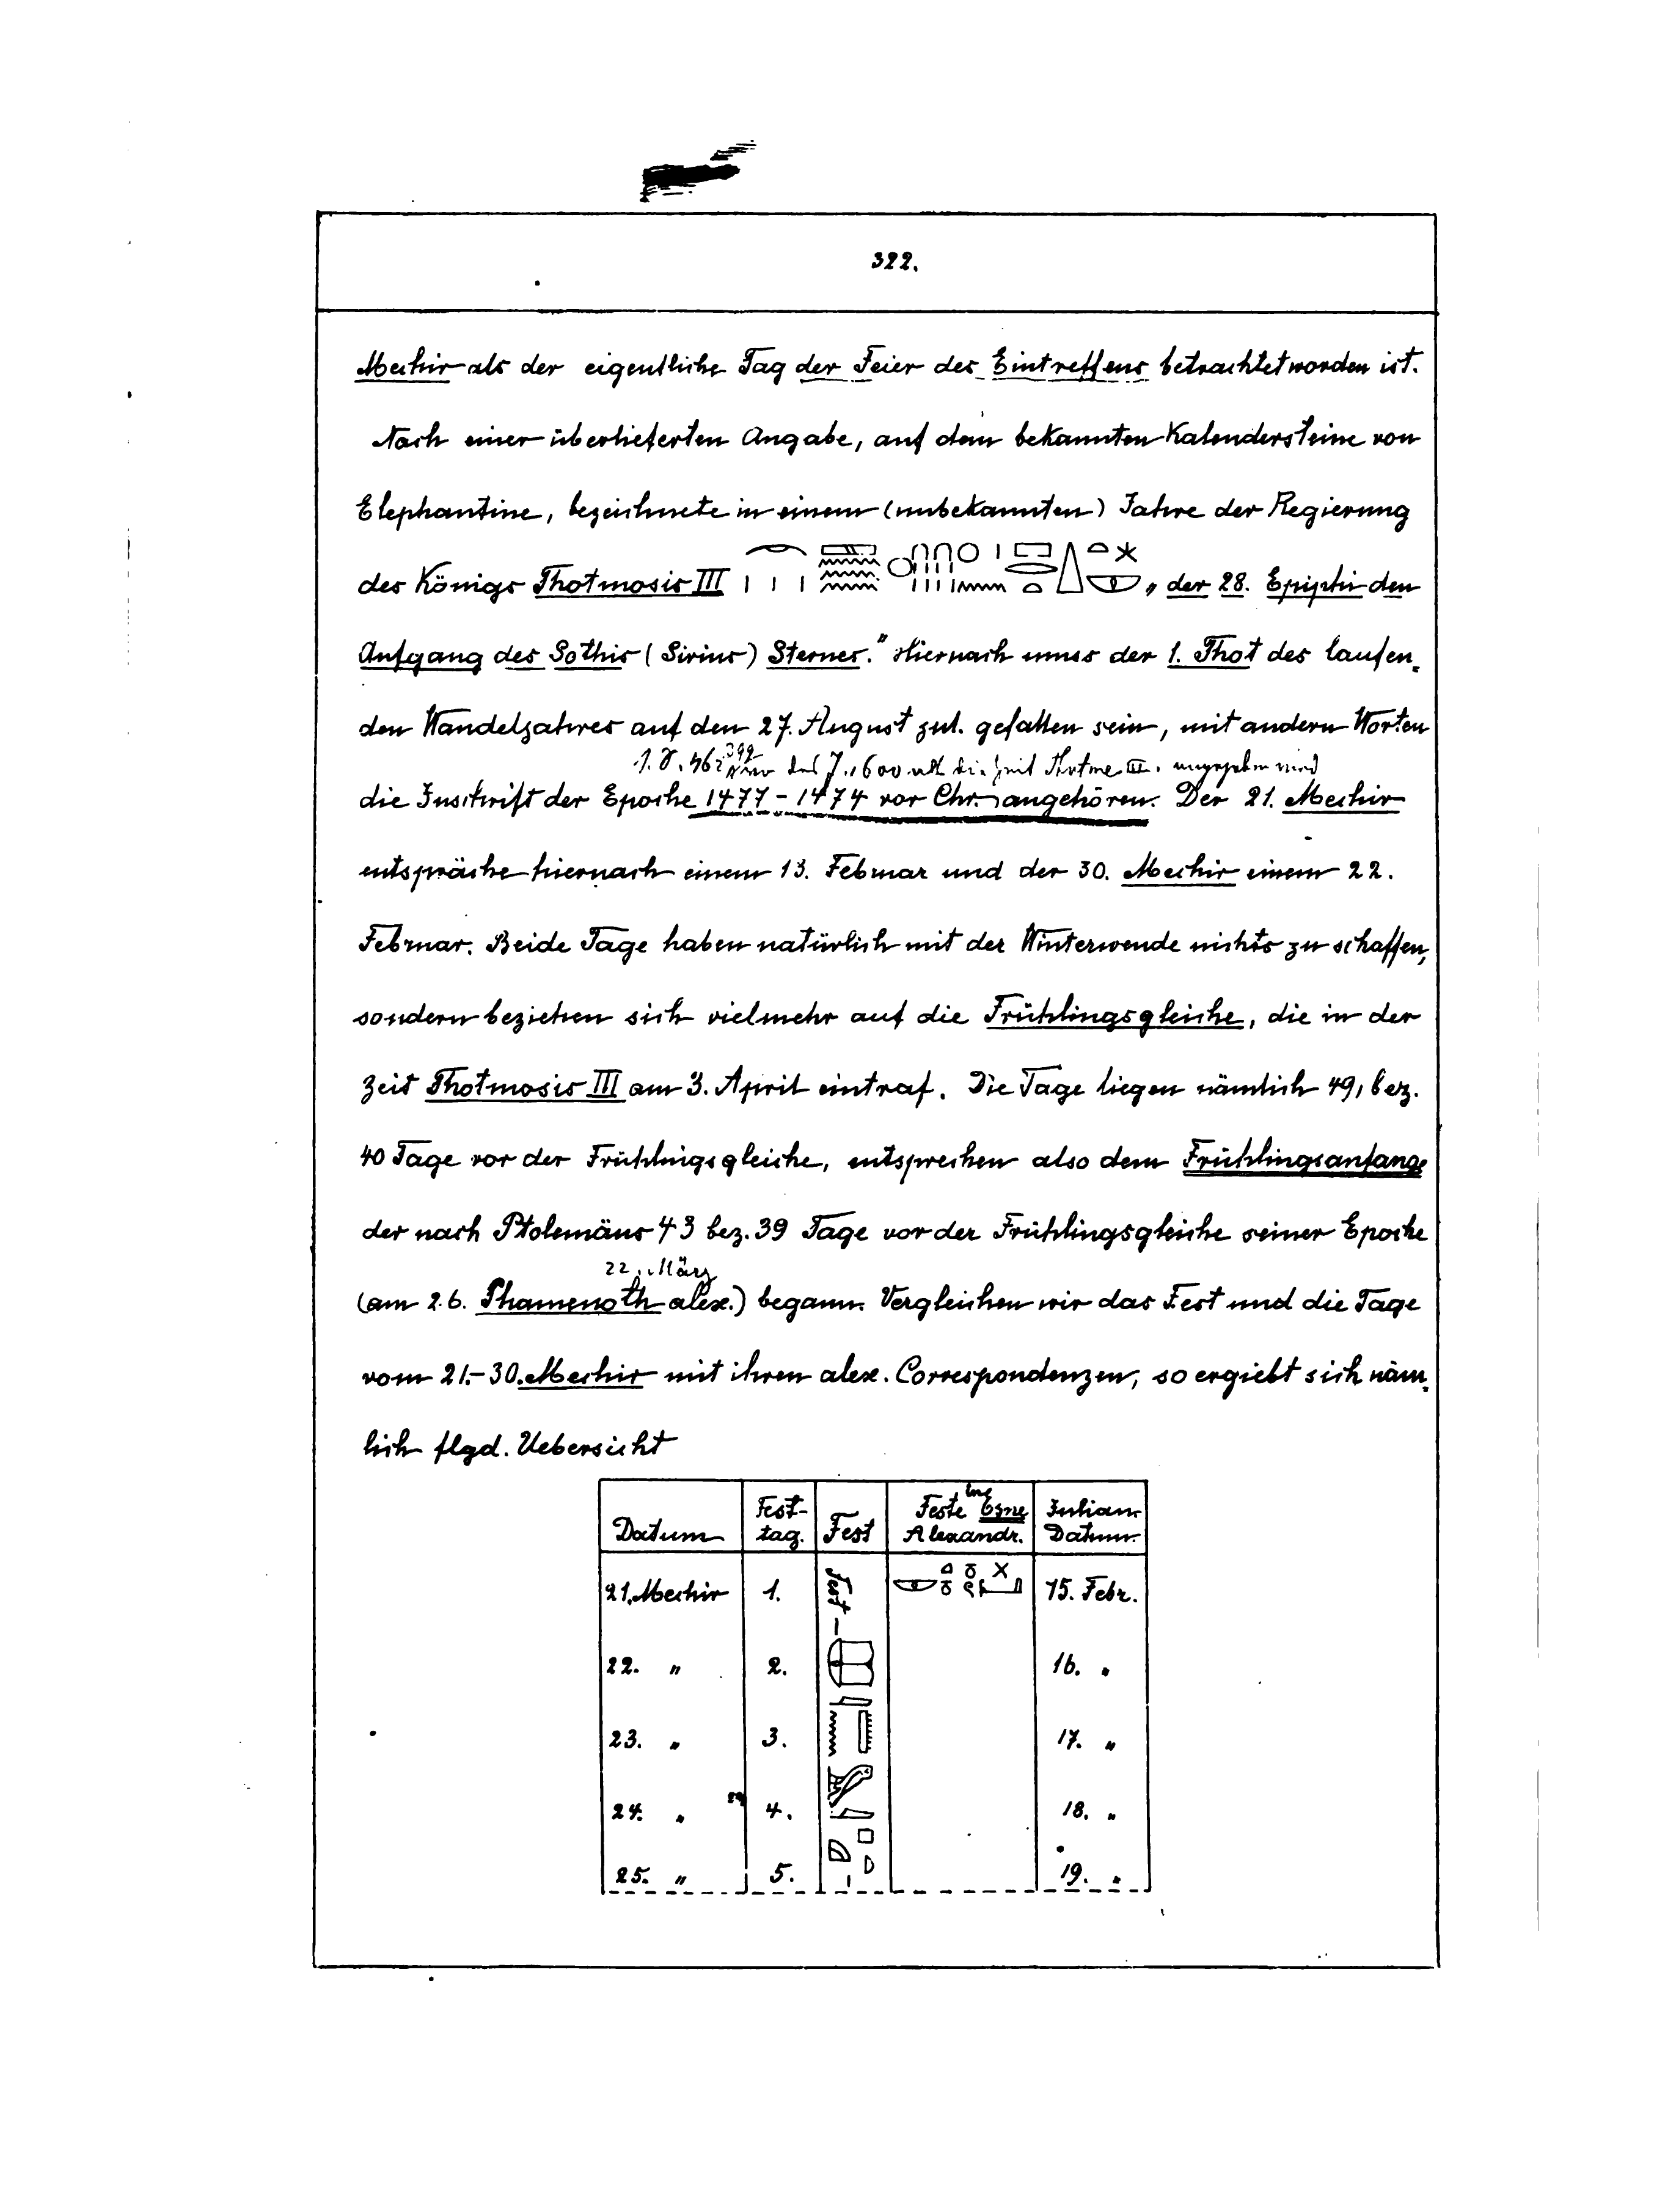 322.
Mechir als der eigentliche Tag der Feier des Eintreffens betrachtet worden ist.
Nach einer überlieferten Angabe, auf dem bekannten Kalendersteine von
Elephantine, bezeichnete in einem (unbekannten) Jahre der Regierung
des Königs Thotmosis III „ der 28. Epiphi den
Aufgang des Sothis (Sirius) Sternes." Hiernach muss der 1. Thot des laufen-
den Wandeljahres auf den 27. August jul. gefallen sein, mit andern Worten
die Inschrift der Epoche 1477 - 1474 vor Chr. angehören. Der 21. Mechir
entspräche hiernach einem 13. Februar und der 30. Mechir einem 22.
Februar. Beide Tage haben natürlich mit der Winterwende nichts zu schaffen,
sondern beziehen sich vielmehr auf die Frühlingsgleiche, die in der
Zeit Thotmosis III am 3. April eintraf. Die Tage liegen nämlich 49, bez.
40 Tage vor der Frühlingsgleiche, entsprechen also dem Frühlingsanfange
der nach Ptolemäus 43 bez. 39 Tage vor der Frühlingsgleiche seiner Epoche
22. März
(am 26. Phamenoth alex.) begann. Vergleichen wir das Fest und die Tage
vom 21.-30. Mechir mit ihren alex. Correspondenzen, so ergiebt sich näm-
lich flgd. Uebersicht
Datum Fest-tag. Fest Feste Esne Alexandr. Julian. Datum.
21. Mechir 1. Fest 15. Febr.
22. " 2. 16. "
23. " 3. 17. "
24. " 4. 18. "
25. " 5. 19. "